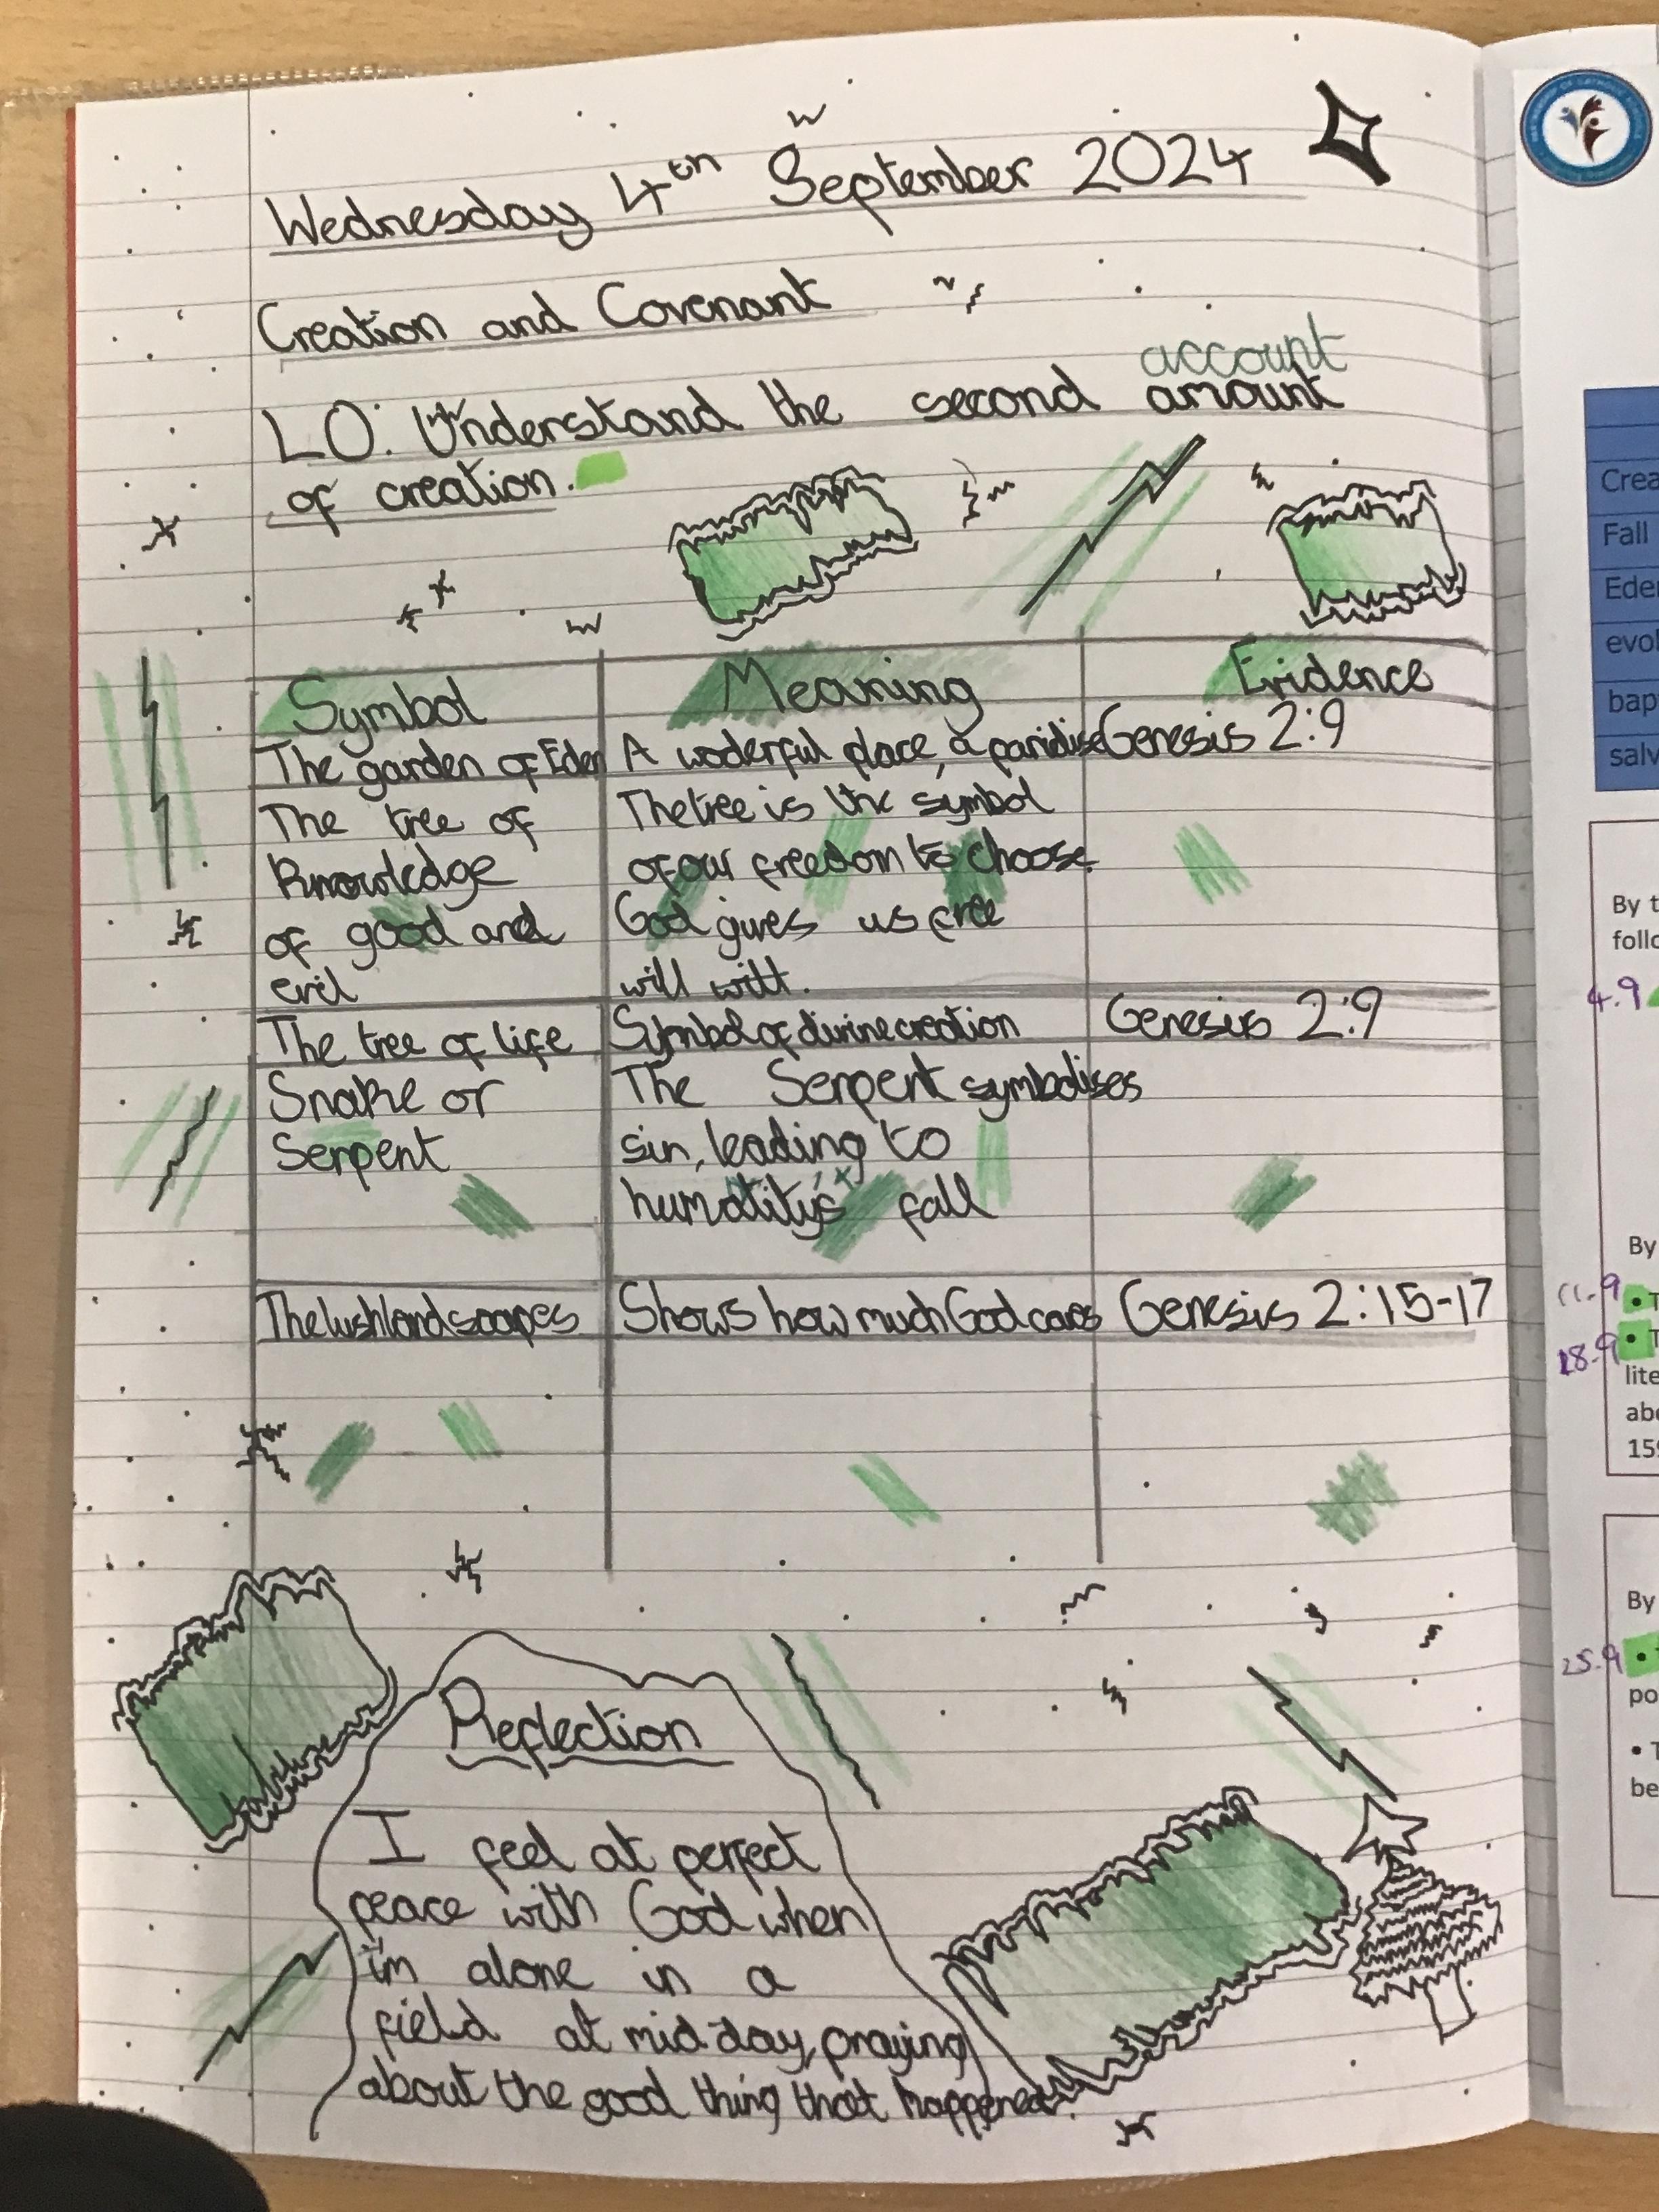 Wednesday 4th September 2024
Creation and Covenant
account
LO: Understand the second amount
of creation.
Symbol Meaning Evidence
The garden of Eden A woderful place, a paridise Genesis 2:9
The tree of The tree is the symbol
Knowledge of our freedom to choose.
of good and God gives us free
evil will will.
The tree of life Symbol of divine creation Genesis 2:9
Snake or The Serpent symbolises
Serpent sin, leading to
humatity's fall
The lush landscapes Shows how much God cares Genesis 2:15-17
Reflection
I feel at perfect
peace with God when
i'm alone in a
field at mid day, praying
about the good thing that happened.
Crea
Fall
Eden
evol
bap
salv
By t
follo
4.9
By
11.9 • T
18.9 • T
lite
abo
159
By
25.9 •
po
• T
be